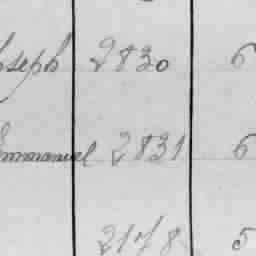 Joseph 2830 6
Emmanuel 2831 6
2178 5